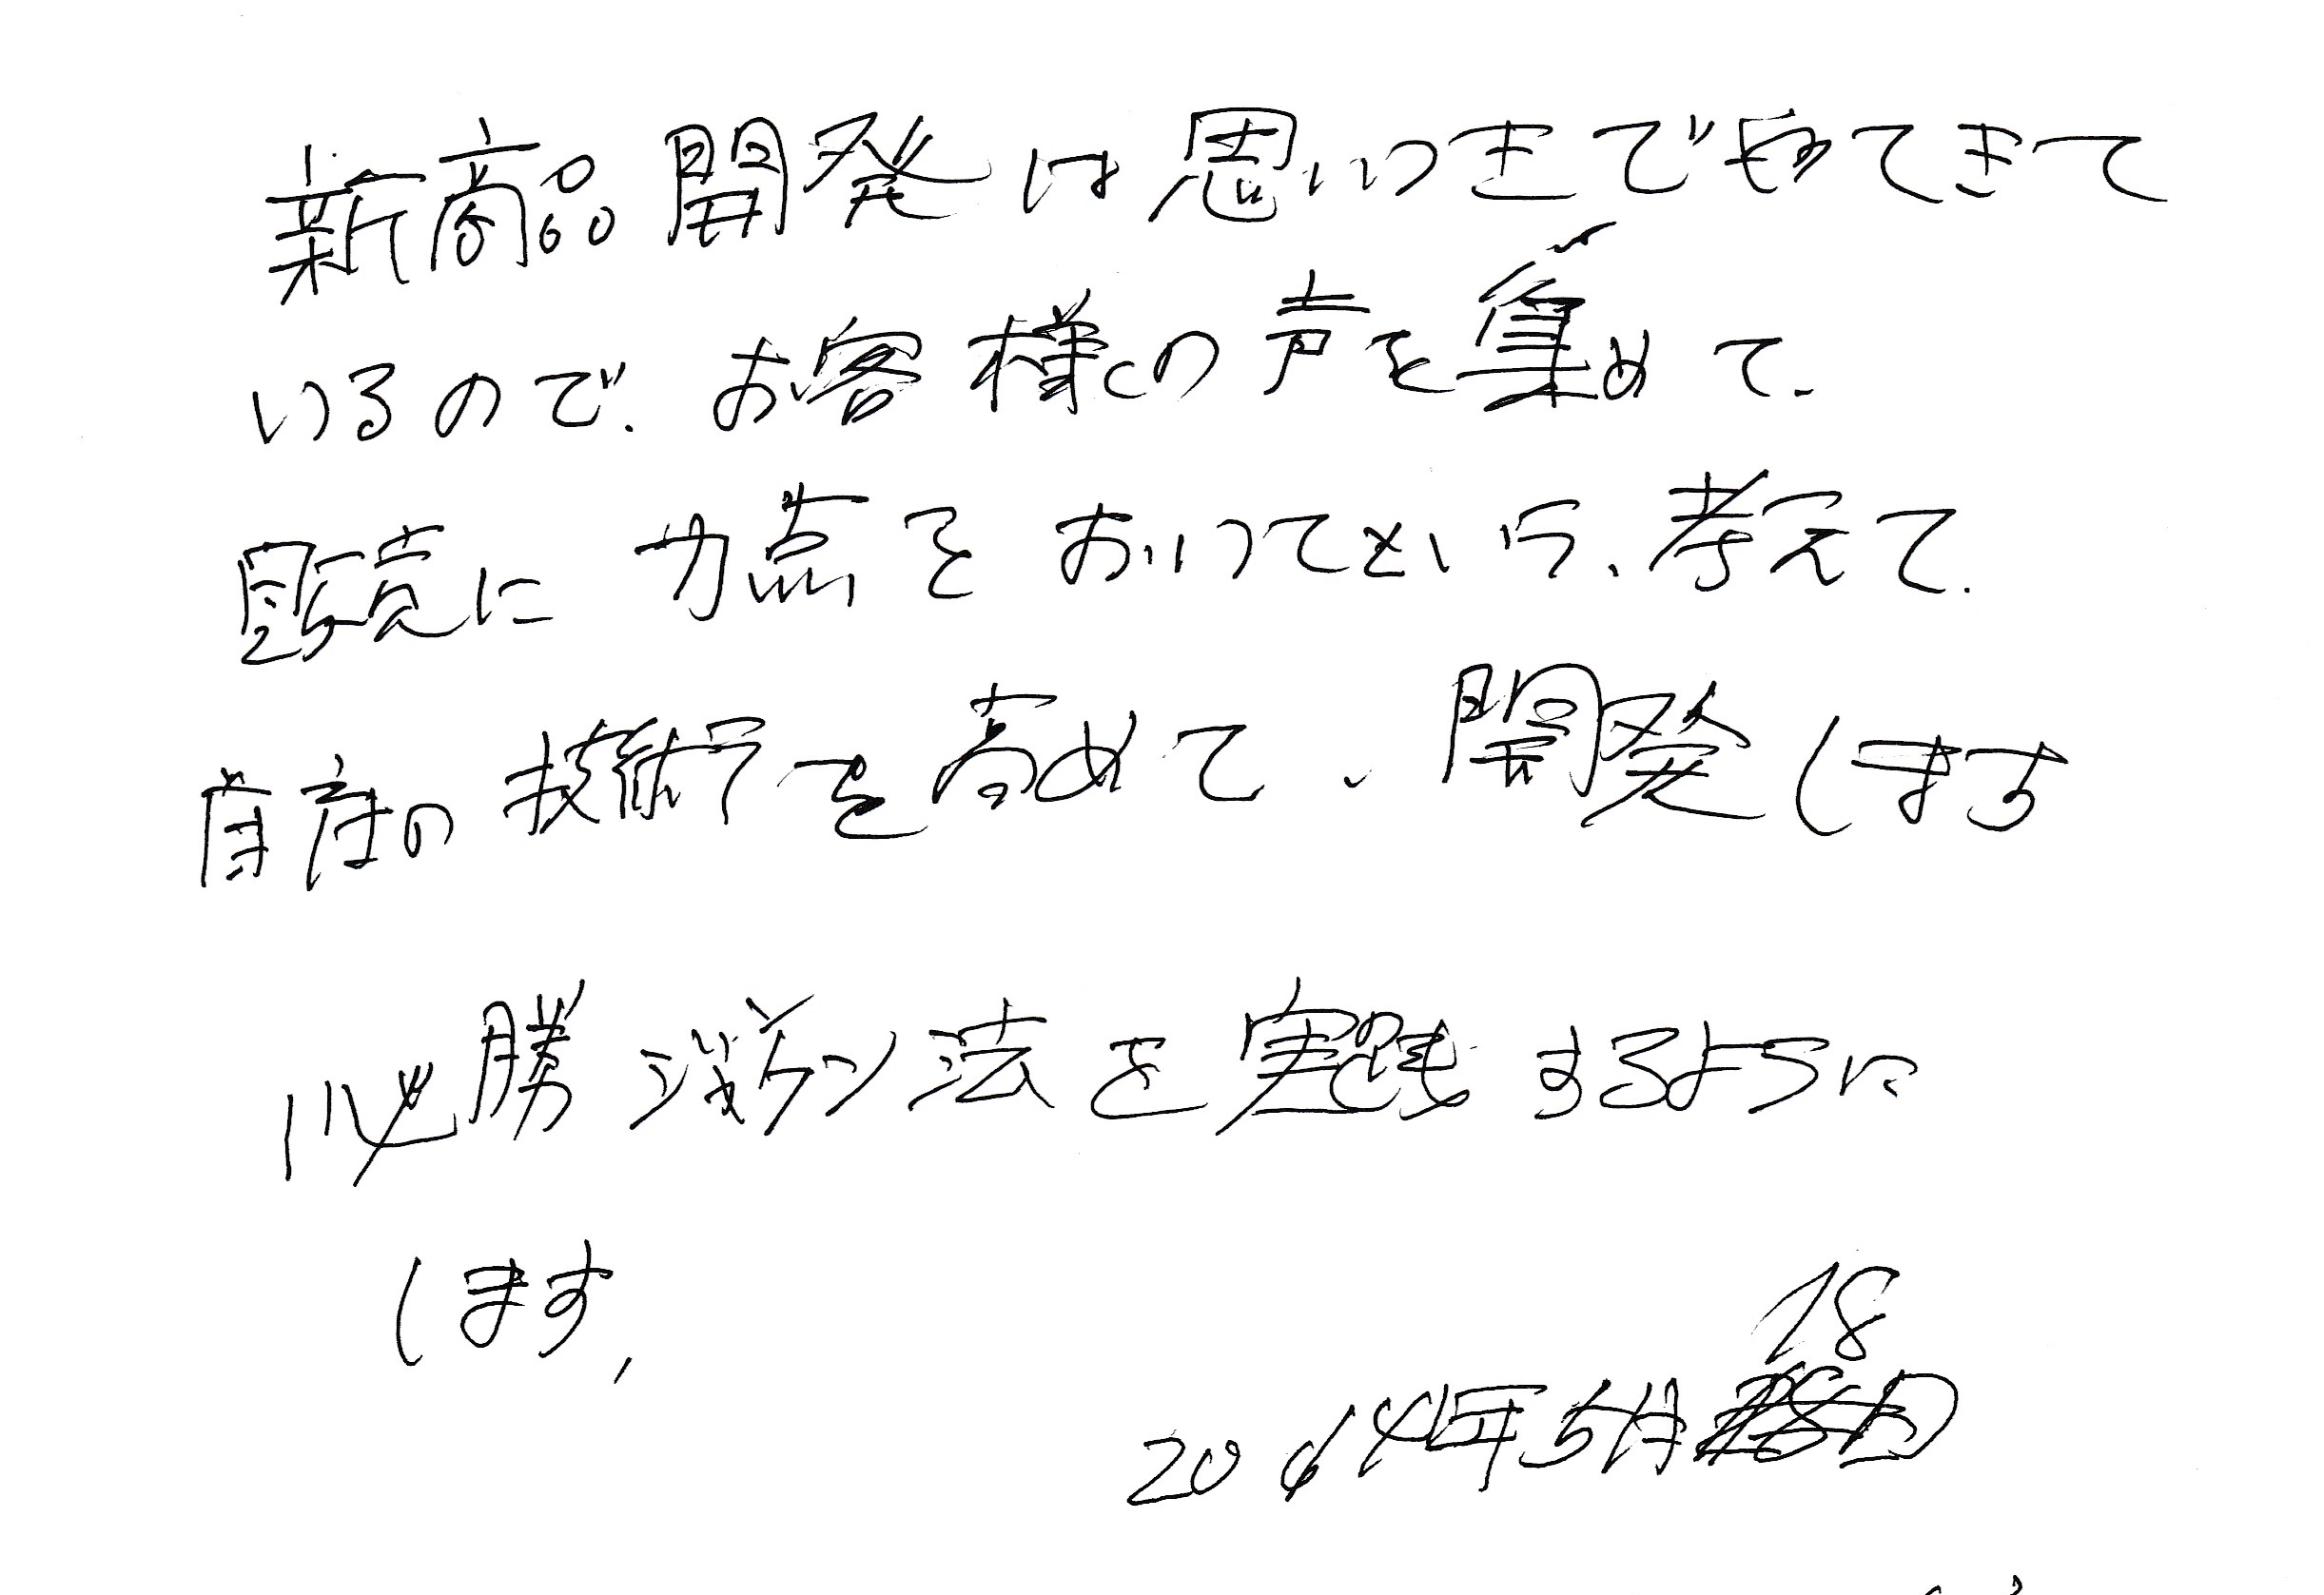 新商品開発は思いつきでやてきて
いるので、お客様の声を集めて、
販売に力点をおいてという、考えて、
自産の技術を高めて、開発します
必勝ジャンケン法を実践するように
します、
18
2014年5月 日